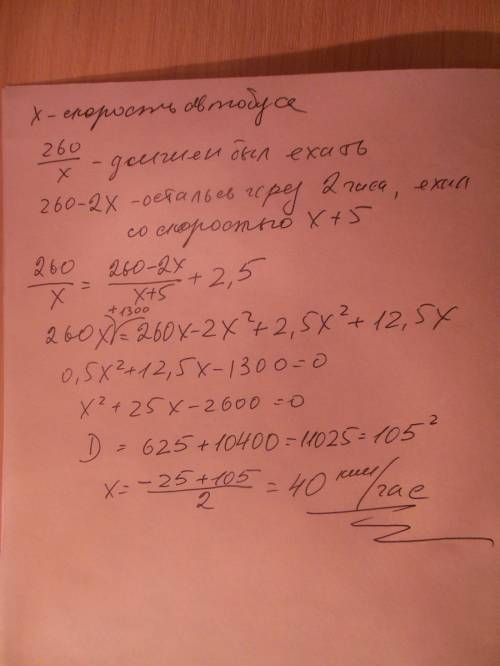 x - скорость автобуса
260/x - должен был ехать
260-2x - осталось через 2 часа, ехал
со скоростью x+5
260/x = (260-2x)/(x+5) + 2,5
260x + 1300 = 260x - 2x² + 2,5x² + 12,5x
0,5x² + 12,5x - 1300 = 0
x² + 25x - 2600 = 0
D = 625 + 10400 = 11025 = 105²
x = (-25+105)/2 = 40 км/час